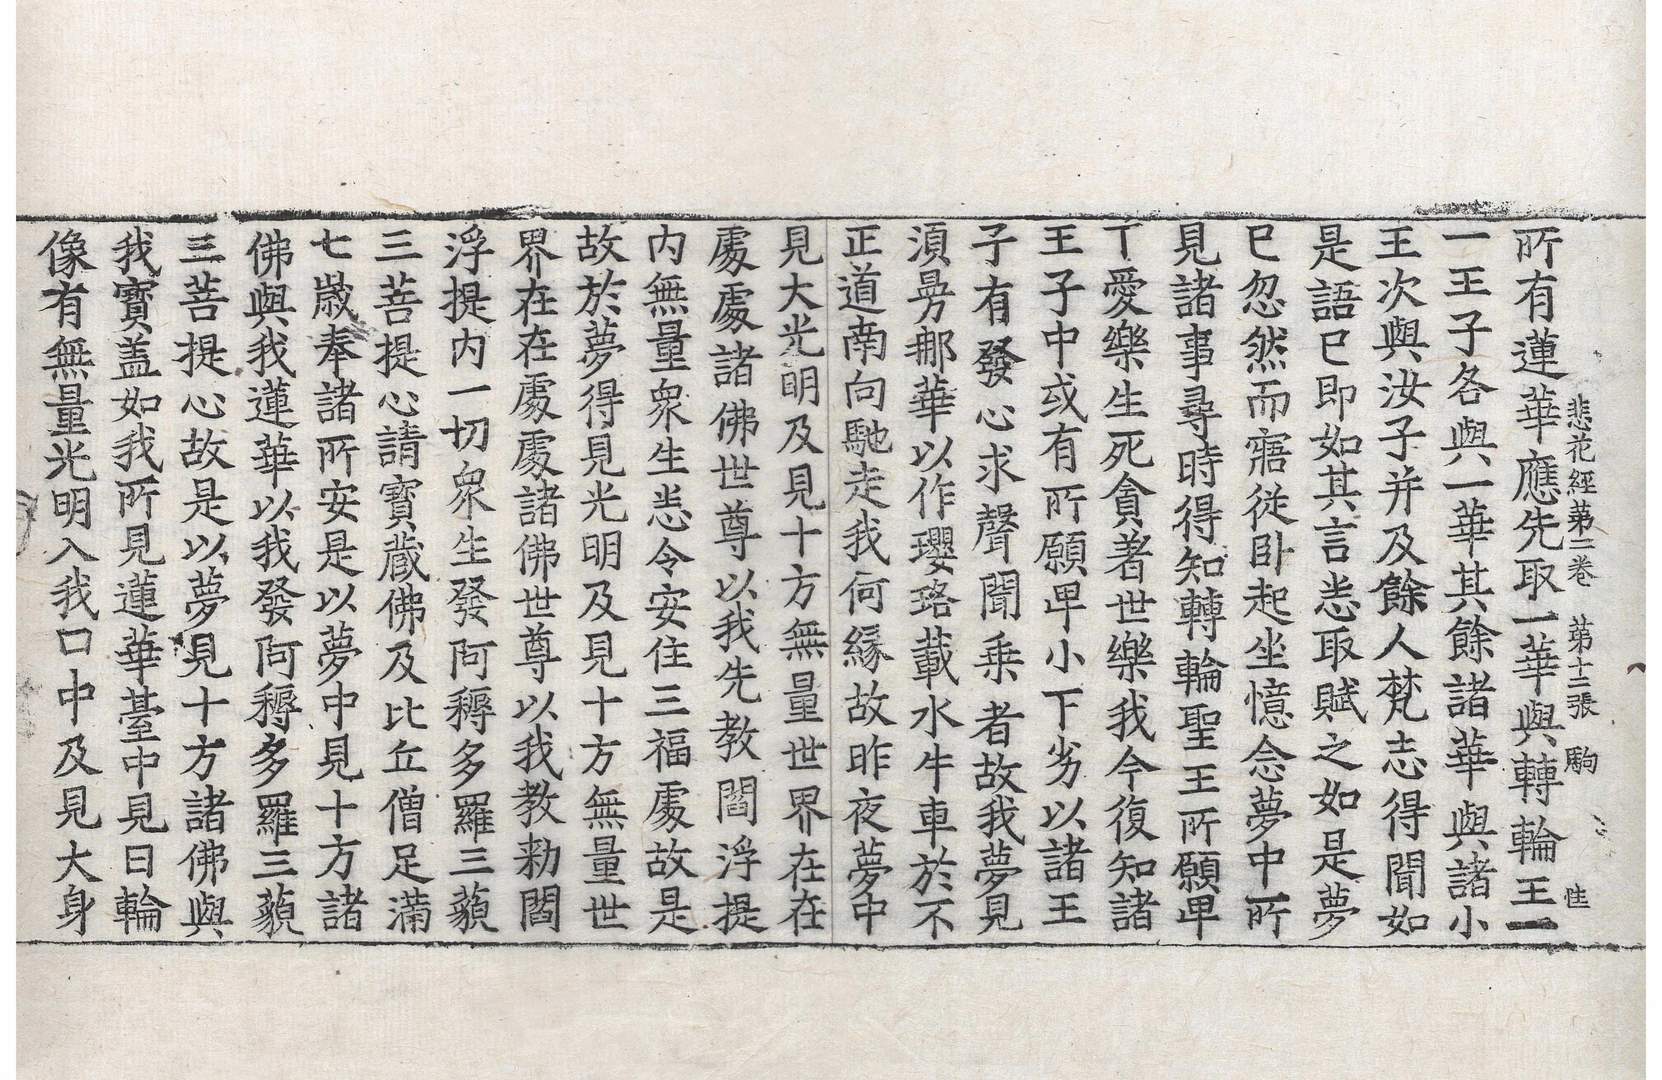 悲花經第二卷 第十二張 駒
所有蓮華應先取一華與轉輪王一
一王子各與一華其餘諸華與諸小
王次與汝子并及餘人梵志得聞如
是語已即如其言悉取賦之如是夢
已忽然而寤從卧起坐憶念夢中所
見諸事尋時得知轉輪聖王所願卑
下愛樂生死貪著世樂我今復知諸
王子中或有所願卑小下劣以諸王
子有發心求聲聞乘者故我夢見
須曼那華以作瓔珞載水牛車於不
正道南向馳走我何緣故昨夜夢中
見大光明及見十方無量世界在在
處處諸佛世尊以我先教閻浮提
內無量衆生悉令安住三福處故是
故於夢得見光明及見十方無量世
界在在處處諸佛世尊以我教勑閻
浮提內一切衆生發阿耨多羅三藐
三菩提心請寶藏佛及比丘僧足滿
七歲奉諸所安是以夢中見十方諸
佛與我蓮華以我發阿耨多羅三藐
三菩提心故是以夢見十方諸佛與
我寶盖如我所見蓮華臺中見日輪
像有無量光明入我口中及見大身